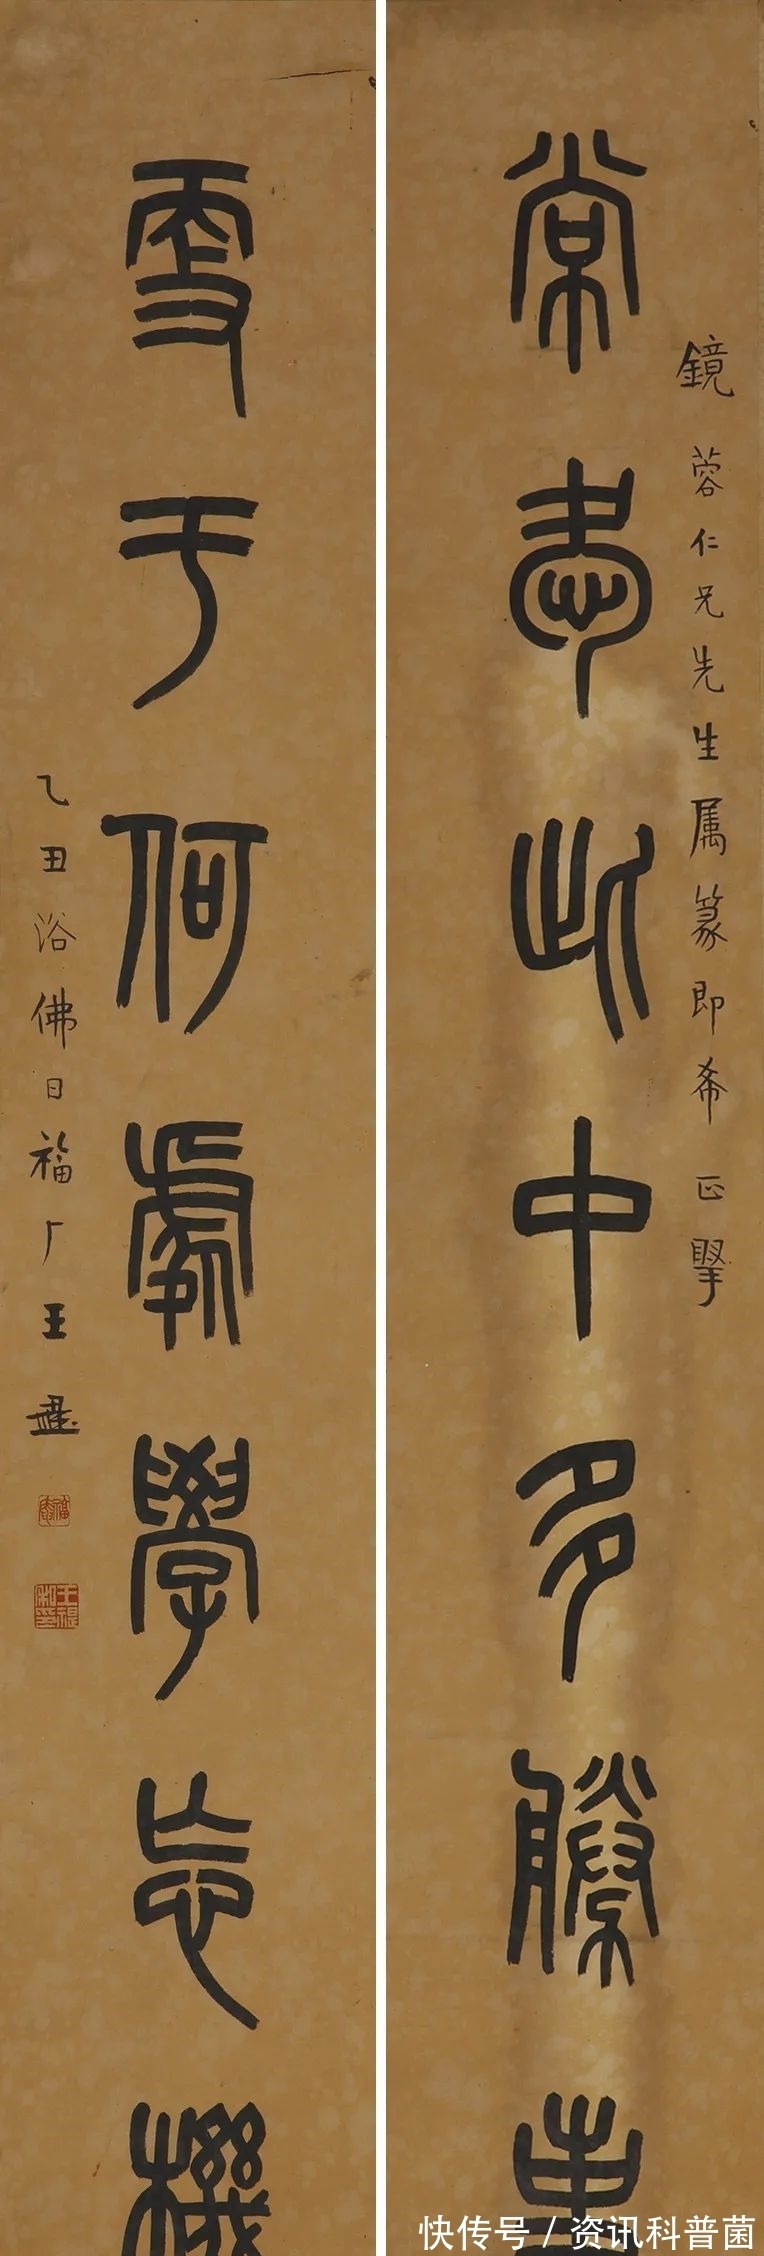 鏡蓉仁兄先生属篆即希 正掔
常愛此中多勝事
更于何處學忘機
乙丑浴佛日福厂王禔
福庵
王禔私印
快传号 / 资讯科普菌